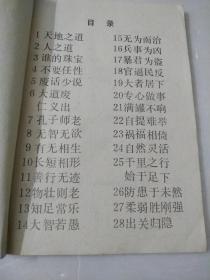 目录
1 天地之道
2 人之道
3 谁的珠宝
4 不要任性
5 废话少说
6 大道废
仁义出
7 孔子师老
8 无智无欲
9 有无相生
10 长短相形
11 善行无迹
12 物壮则老
13 知足常乐
14 大智若愚
15 无为而治
16 兵事为凶
17 暴君为盗
18 官逼民反
19 大者居下
20 专心做事
21 满罐不响
22 自提难举
23 祸福相倚
24 自然灵活
25 千里之行
始于足下
26 防患于未然
27 柔弱胜刚强
28 出关归隐